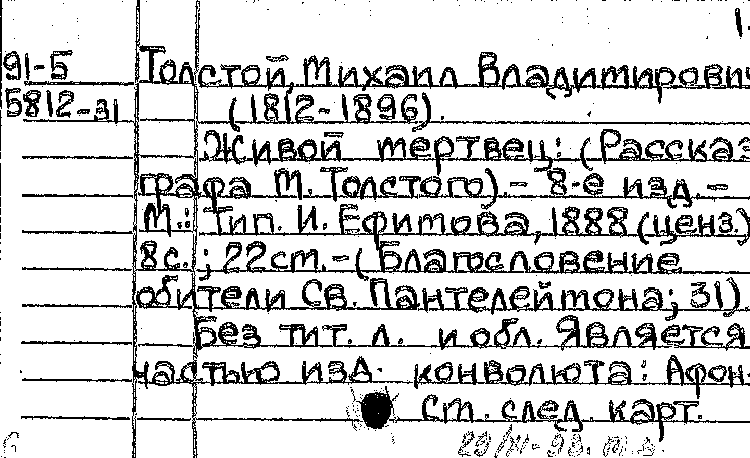 1.
91-5 Толстой, Михаил Владимирович
5812-31 (1812-1896).
Живой мертвец: (Рассказ
графа М. Толстого).- 8-е изд.-
М.: Тип. И. Ефимова, 1888 (ценз.)
8с.; 22см.-( Благословение
обители Св. Пантелеймона; 31)
Без тит. л. и обл. Является
частью изд. конволюта: Афон-
См. след. карт.